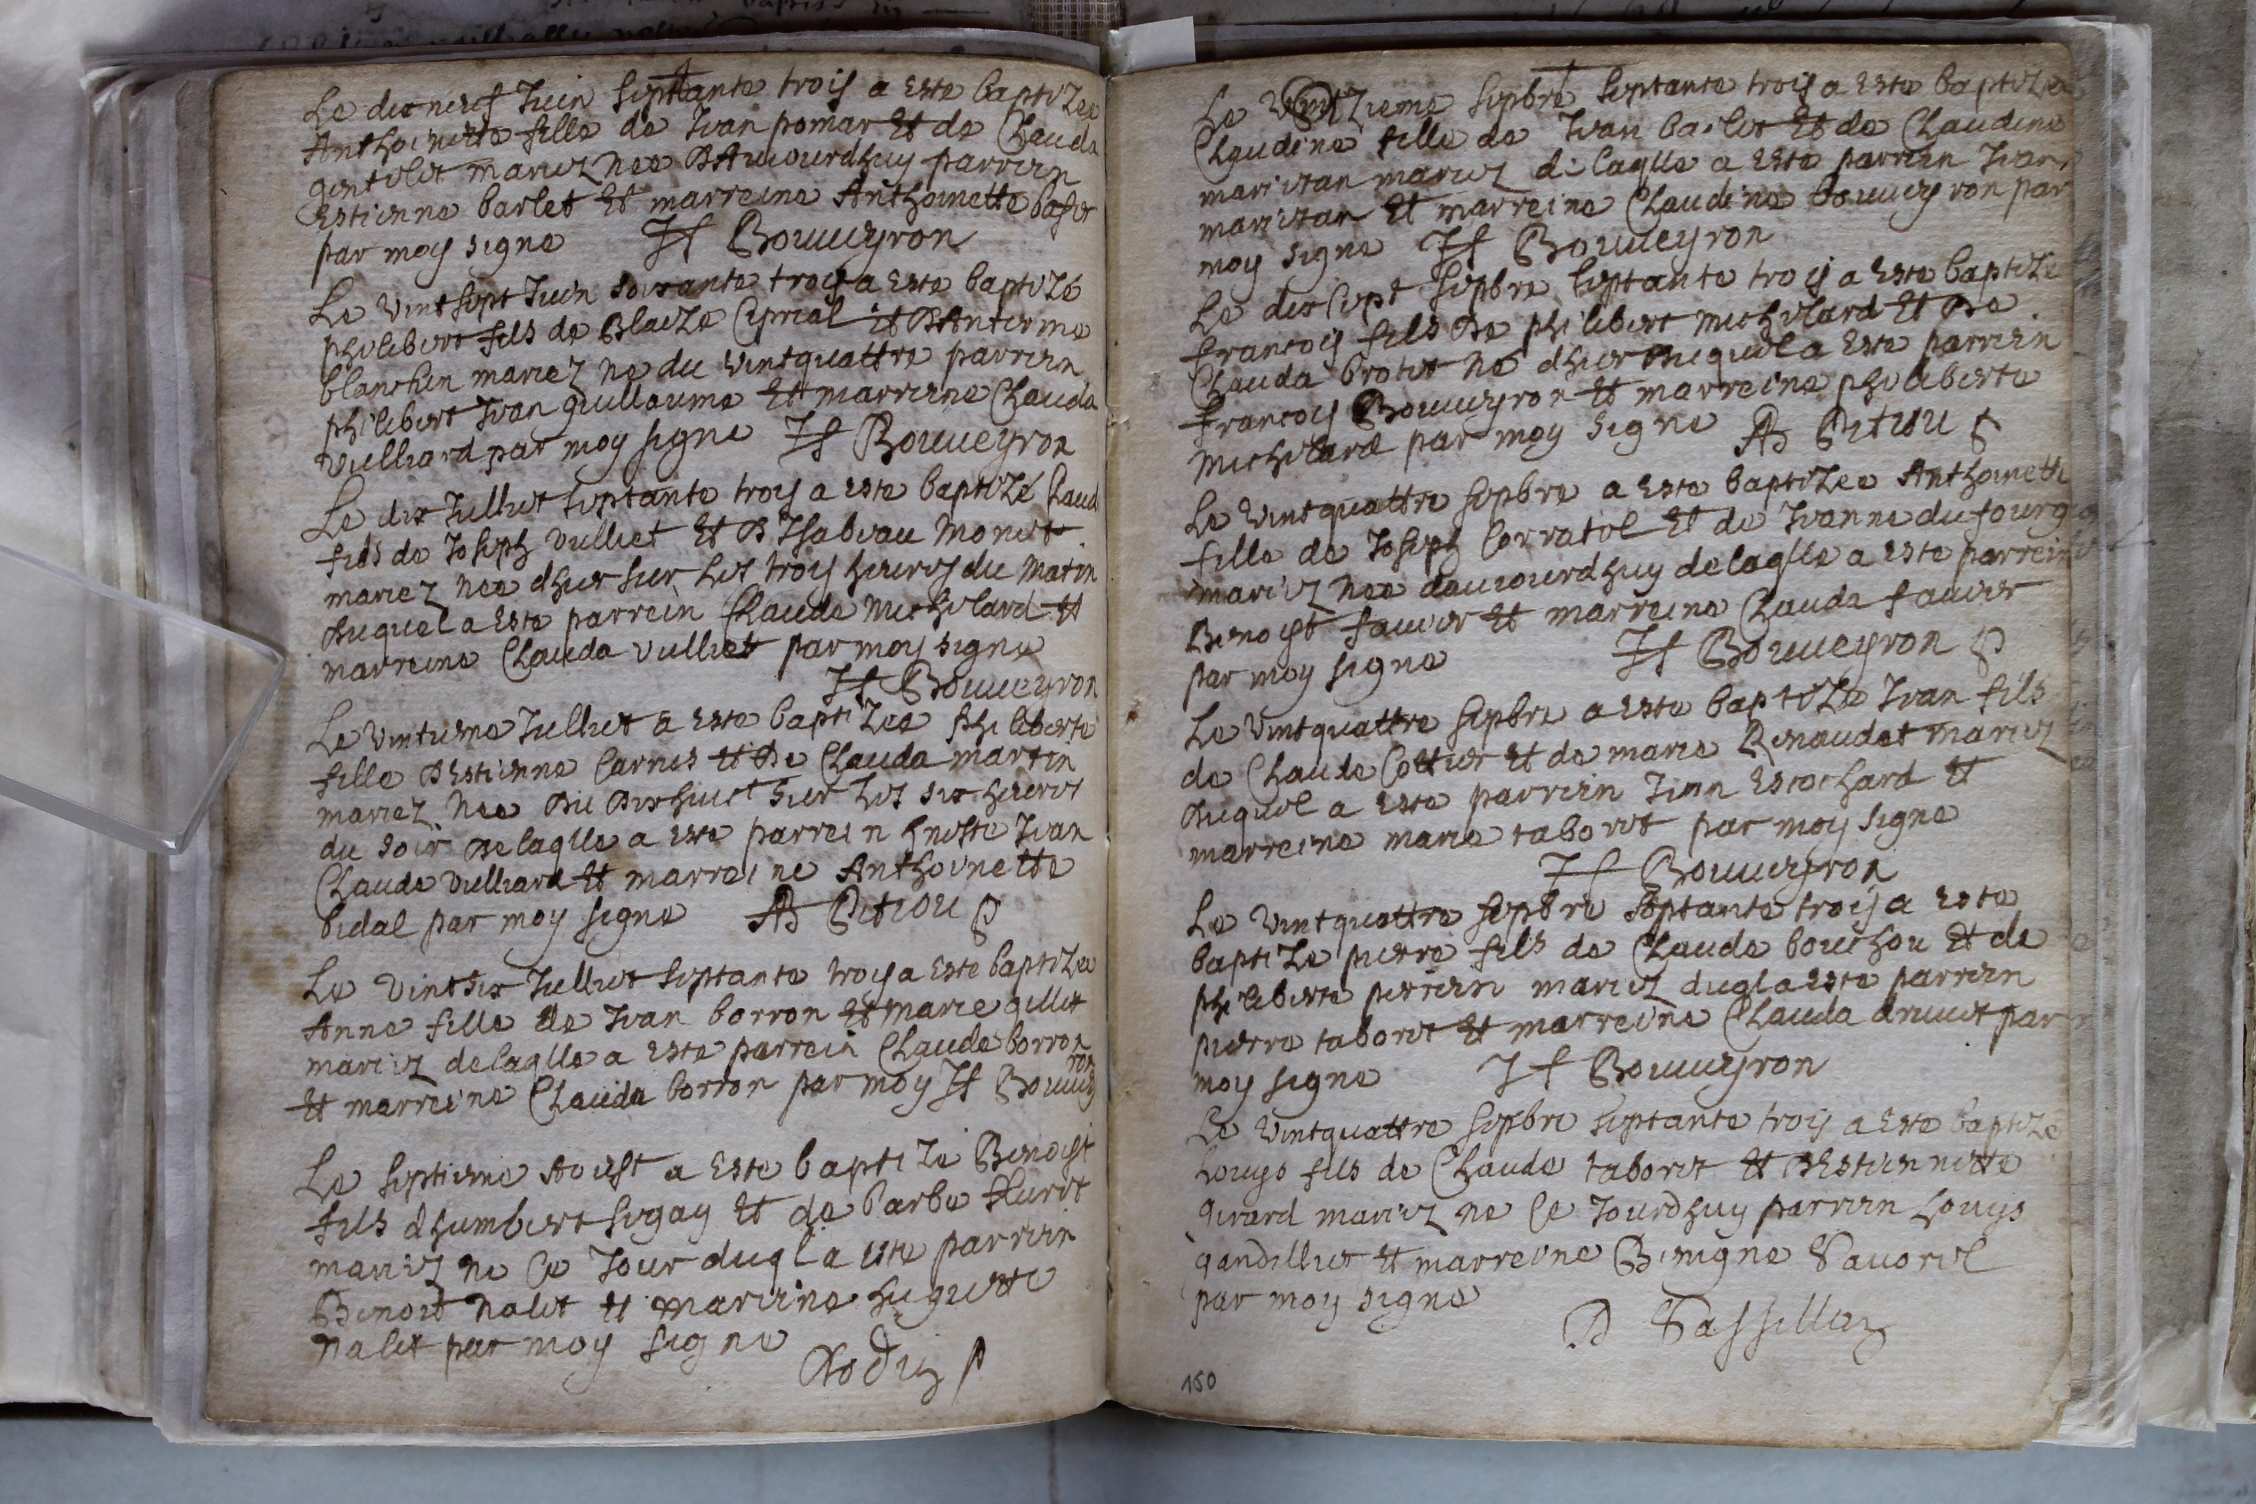 Le dixneuf Juin septante trois a este baptizee
Anthoinette fille de Jean pomar et de Clauda
gentelet mariez nee d'Aujourdhuy parrein
Estienne barlet et marreine Anthoinette
par moy signe JF Bouveyron
Le vintsept Juin soixante trois a este baptizé
philibert fils de Blaize Ciprial et d'Anterme
blanchin mariez ne du vintquattre parrein
philibert Jean guillaume et marreine Clauda
vulliard par moy signe JF Bouveyron
Le dix Julliet septante trois a este baptizé Claud
fils de Joseph vulliet et d'Isabeau Monet
mariez nee dhier sur les trois heures du Matin
duquel a este parrein Claude Michelard et
marreine Clauda vulliet par moy signe
JF Bouveyron
Le vintiesme Julliet a este baptizee philiberte
fille d'Estienne Carnes et de Clauda martin
mariez nee du dixhuict sur les six heures
du soir de laqlle a este parrein hneste Jean
Claude vulliard et marreine Anthoinette
bidal par moy signe Petiou
Le vintsix Julliet septante trois a este baptizee
Anne fille de Jean borron et marie gillet
mariez de laqlle a este parrein Claude borron
et marreine Clauda borron par moy JF Bouvey
ron
Le septieme Aoust a este baptizé Benoist
fils dhumbert sigay et de barbe fluret
mariez ne Ce Jour duql a este parrein
Benoist nalet et marreine huguette
nalet par moy signe
Le sepbre septante trois a este baptizee
Claudine fille de Jean barlet et de Claudine
marietan mariez de laqlle a este parrein Jean
marietan et marreine Claudine bouveyron par
moy signe JF Bouveyron
Le dixsept sepbre septante trois a este baptizé
francois fils de philibert michelard et de
Clauda brotet né dhier duquel a este parrein
francois Bouveyron et marreine philiberte
michelard par moy signe Petiou
Le vintquattre sepbre a este baptizee Anthoinette
fille de Joseph Corratel et de Jeanne dufourg
mariez nee daujourdhuy de laqlle a este parrein
Benoist favier et marreine Clauda favier
par moy signe JF Bouveyron
Le vintquattre sepbre a este baptize Jean fils
de Claude Cottier et de marie Renaudet mariez
duquel a este parrein Jean Escochard et
marreine marie taboret par moy signe
JF Bouveyron
Le vintquattre sepbre septante trois a este
baptize pierre fils de Claude bouchou et de
philiberte perrein mariez duql a este parrein
pierre taboret et marreine Clauda druet par
moy signe JF Bouveyron
Le vintquattre sepbre septante trois a este baptizé
Louys fils de Claude taboret et d'Estiennette
girard mariez ne Ce Jourdhuy parrein Louys
gandilliet et marreine Benigne Savorel
par moy signe
150